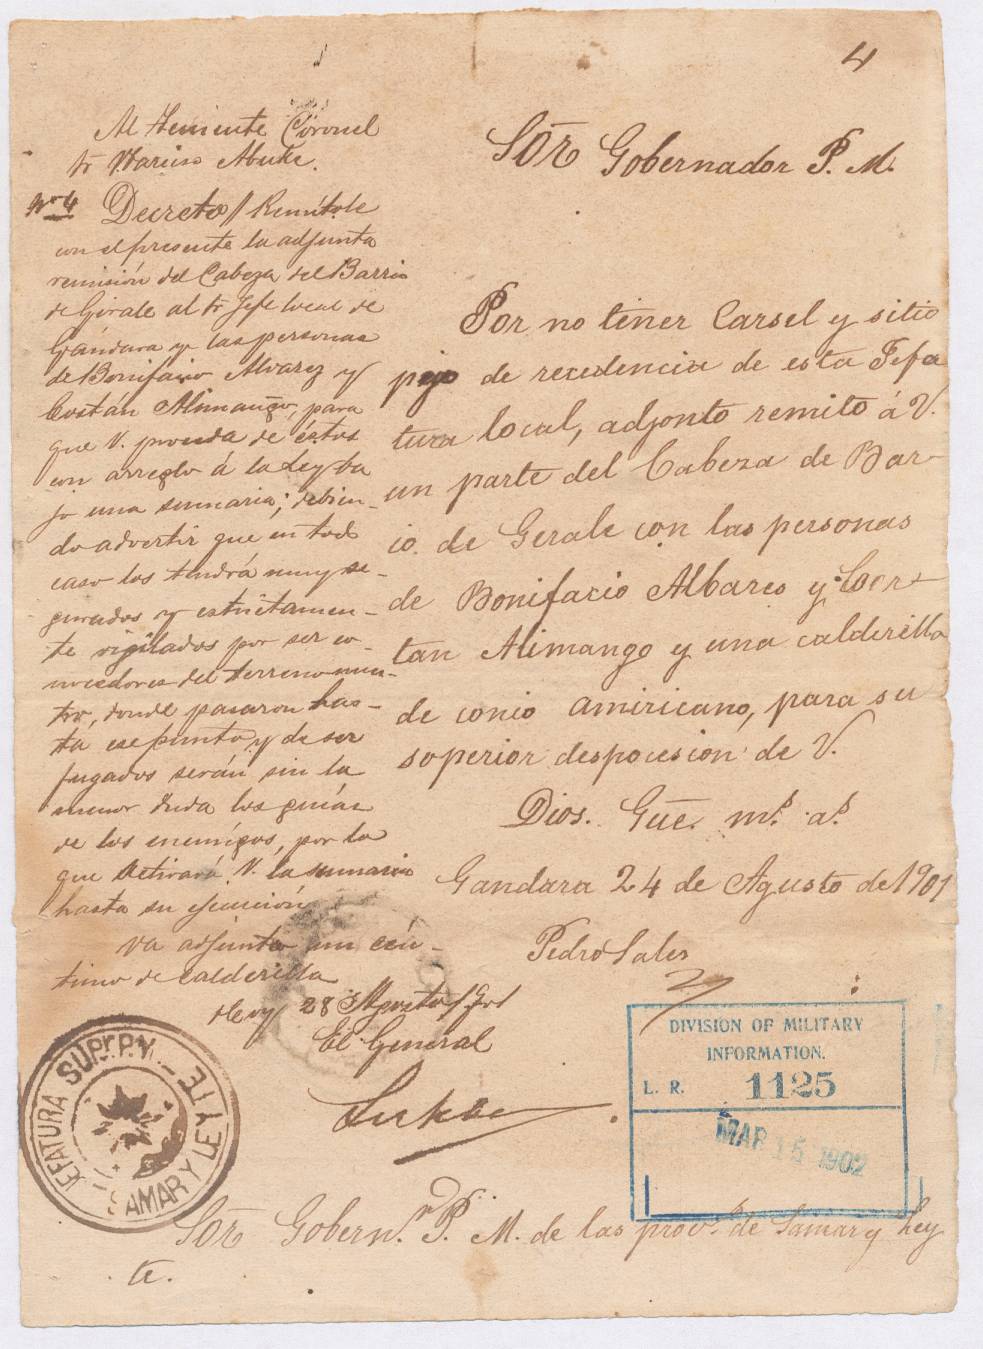 4
Al Teniente Coronel
Sr Narciso Abuke.
Nº 4 Decreto / Remítole
con el presente la adjunta
remisión del Cabeza del Barrio
de Girale al Sr Jefe local de
Gándara y las personas
de Bonifacio Alvarez y
Costán Alimango, para
que V. proceda de éstos
con arreglo á la Ley ba
jo una sumaria; debien-
do advertir que en todo
caso los tendrá muy se-
gurados y estrictamen-
te vigilados por ser co-
nocedores del terreno nues-
tro, donde pasaron has-
ta ese punto y de ser
fugados serán sin la
menor duda los guías
de los enemigos, por lo
que Activará V. la sumaria
hasta su ejecución
Va adjunto un cén-
timo de calderilla
28 Agosto / 901
El General
Lukban
Sōr Gobernador P. M.
Por no tener Carsel y sitio
pijo de recedencia de esta Jefa
tura local, adjonto remito á V.
un parte del Cabeza de Bar-
io. de Gerale con las personas
de Bonifacio Albares y Coor-
tan Alimango y una calderilla
de conio amiricano, para su
superior desposesion de V.
Dios. Güe. ms. as.
Gandara 24 de Agusto de 1901
Pedro Sales
DIVISION OF MILITARY
INFORMATION.
L. R. 1125
MAR 15 1902
JEFATURA SUPR. P.M.
SAMAR Y LEYTE
Sōr Gobern.r P. M. de las provs. de Samar y Ley
te.